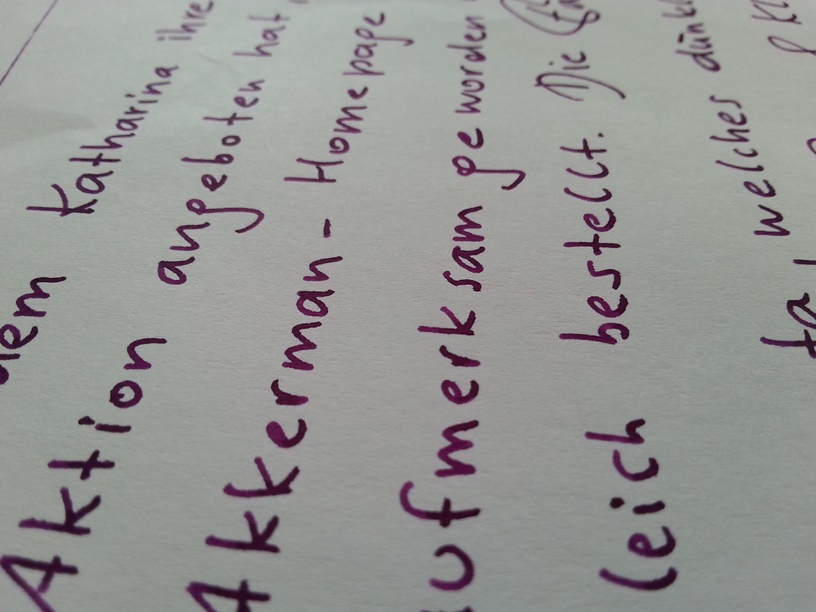 dem Katharina ihre
Aktion angeboten hat
Akkerman-Homepage
aufmerksam geworden
leich bestellt. Die
welches dunkl